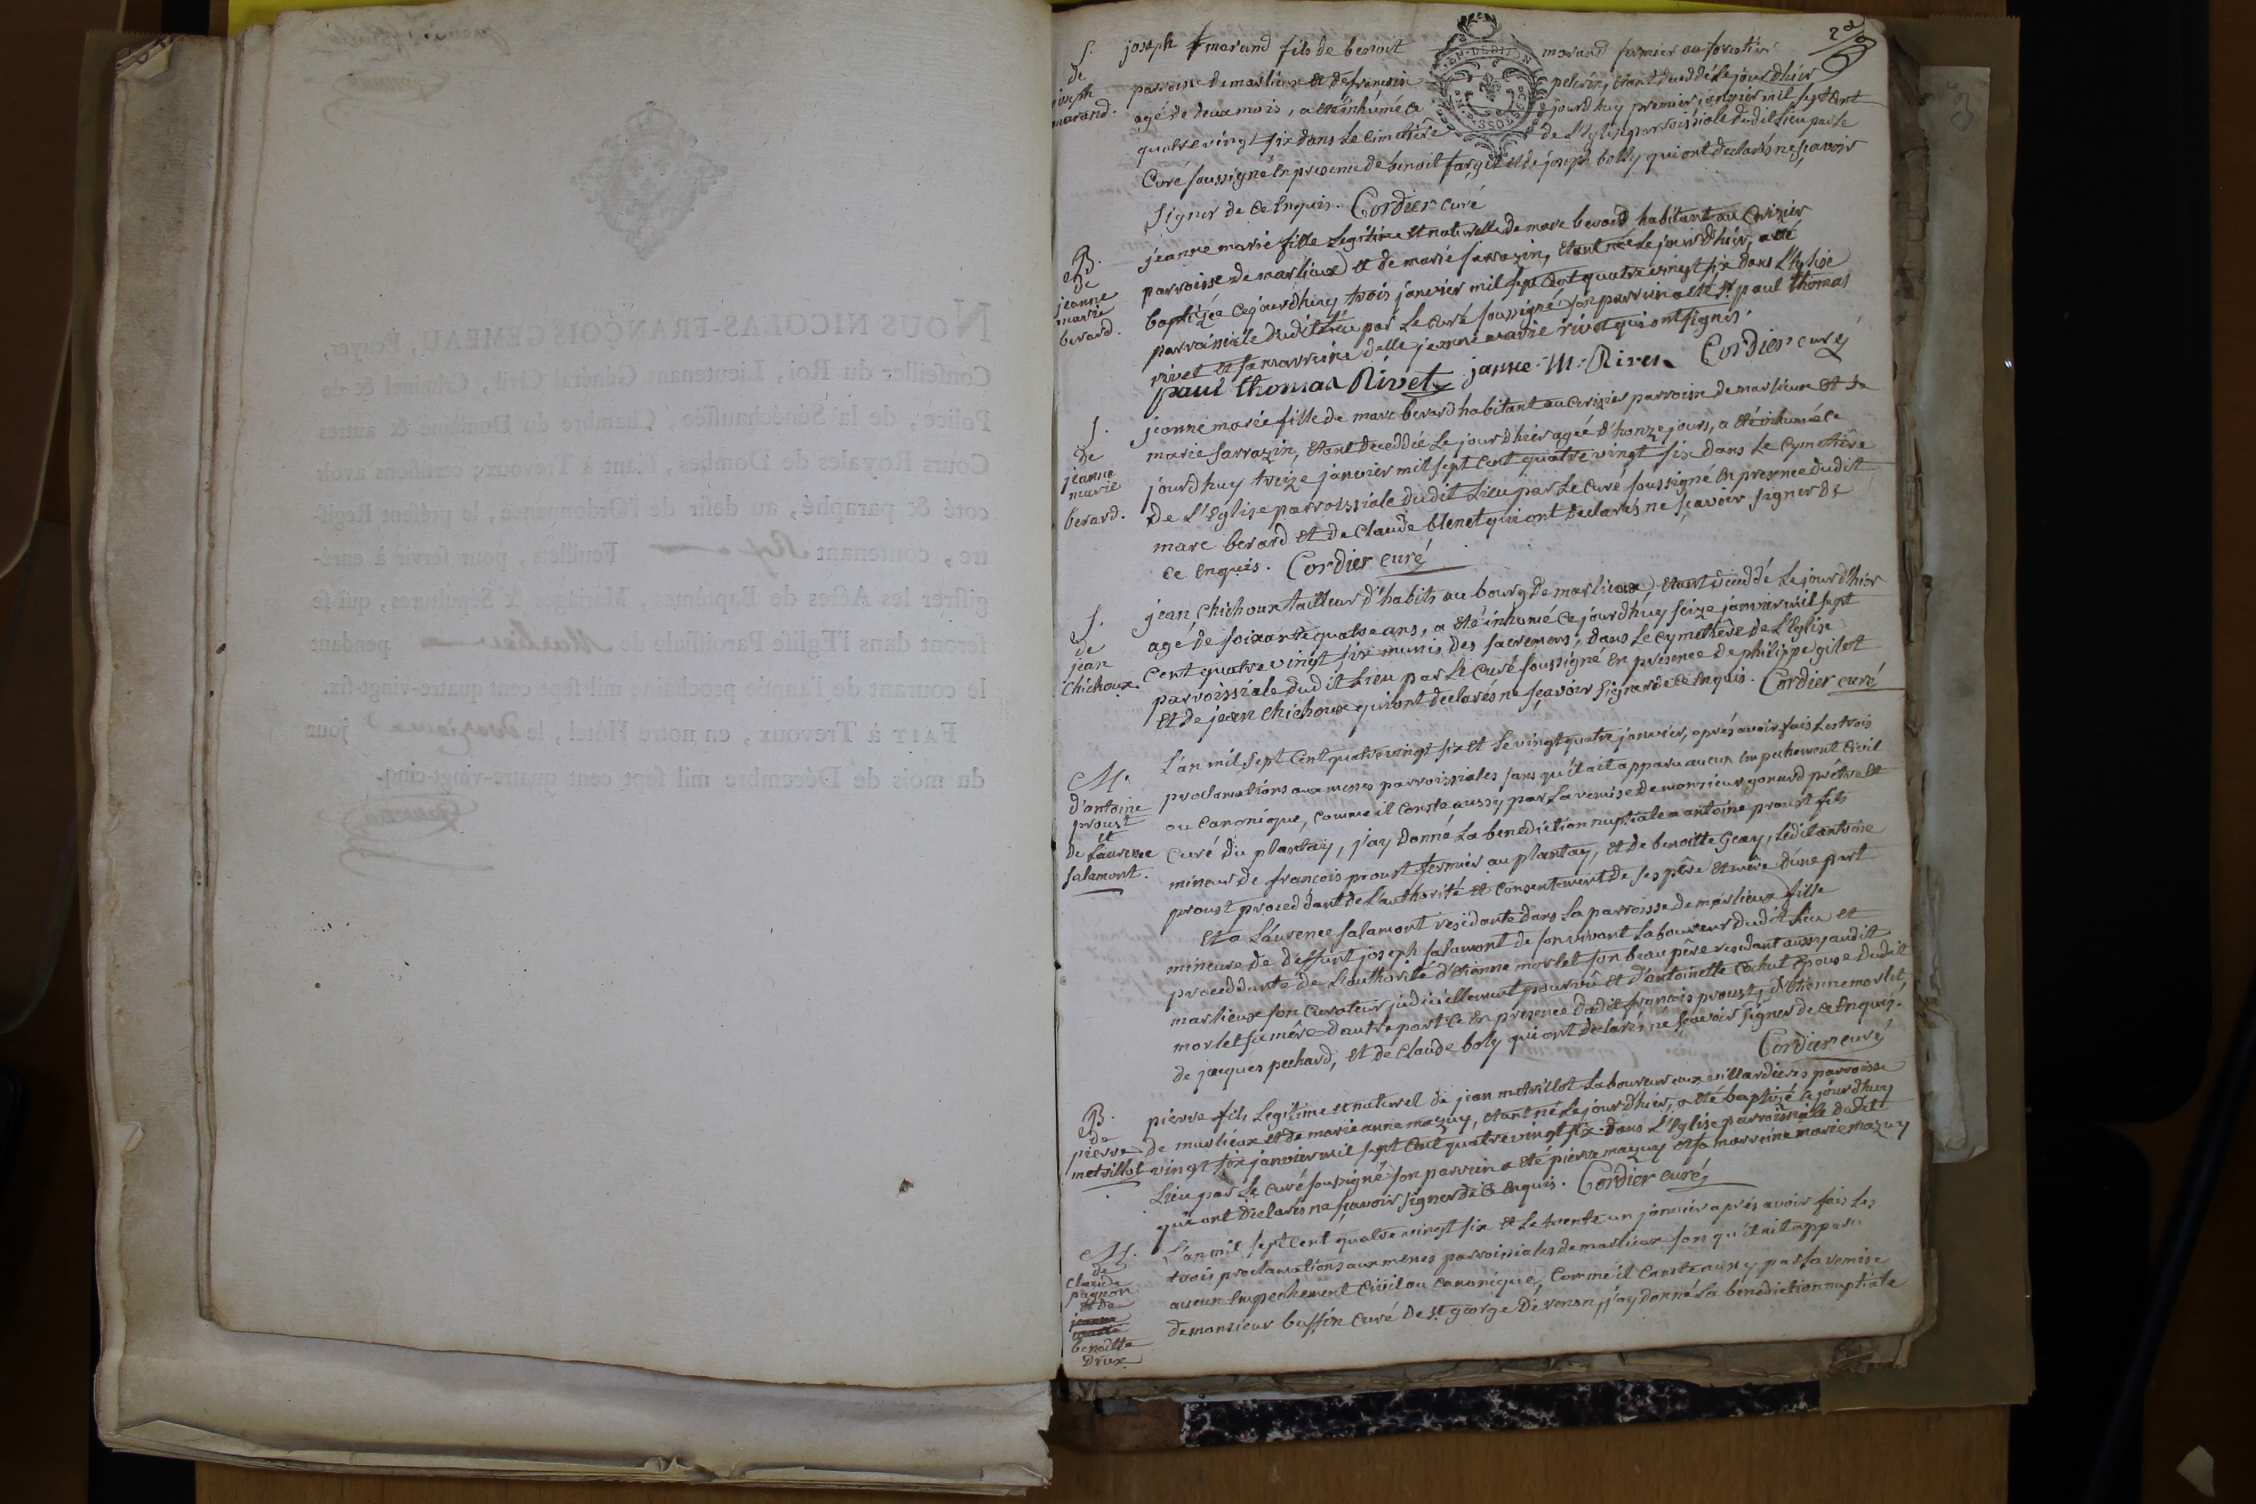 NOUS NICOLAS-FRANÇOIS GEMEAU, Ecuyer,
Conseiller du Roi, Lieutenant Général Civil, Criminel & de
Police, de la Sénéchaussée, Chambre du Domaine & autres
Cours Royales de Dombes, séant à Trevoux; certifions avoir
coté & paraphé, au desir de l'Ordonnance, le présent Regis-
tre, contenant Feuillets, pour servir à enré-
gistrer les Actes de Baptêmes, Mariages & Sépultures, qui se
feront dans l'Eglise Paroissiale de Marlieu pendant
le courant de l'année prochaine mil sept cent quatre-vingt-six.
FAIT à Trevoux, en notre Hôtel, le jour
du mois de Décembre mil sept cent quatre-vingt-cinq.
S.
de
joseph
marand.
joseph marand fils de benoit marand fermier au
parroisse de marlieux et de francoise pelerin, etant deceddé le jour d'hier
agé de deux mois, a eté inhumé ce jourd'huy premier janvier mil sept cent
quatre vingt six dans le cimetière de L'Eglise parroissiale dudit Lieu par Le
Curé soussigné En presence de benoit farget et de joseph bolly qui ont declarés ne sçavoir
signer de ce Enquis. Cordier curé
B.
de
jeanne
marie
berard.
jeanne marie fille Legitime et naturelle de marc berard habitant au Cerisier
parroisse de marlieux et de marie sarrazin, etant née Le jour d'hier, a eté
baptizée cejourd'huy trois janvier mil sept Cent quatre vingt six dans L'Eglise
parroissiale dudit Lieu par Le Curé soussigné son parrein a eté Sr paul thomas
rivet et sa marreine delle jeanne marie rivet qui ont signés.
paul thomas Rivet janne-M-Rivet Cordier curé
S.
de
jeanne
marie
berard.
jeanne marie fille de marc berard habitant au Cerisier parroisse de marlieux et de
marie sarrazin, etant deceddée Le jour d'hier agée d'honze jours, a eté inhumée ce
jourd'huy treize janvier mil sept Cent quatre vingt six dans Le Cymetière
de L'Eglise parroissiale dudit Lieu par Le Curé soussigné En presence dudit
marc berard et de Claude blenet qui ont declarés ne sçavoir signer de
ce Enquis. Cordier curé
S.
de
jean
Chichoux.
jean Chichoux tailleur d'habits au bourg de marlieux, etant deceddé Le jour d'hier
agé de soixante quatre ans, a eté inhumé ce jourd'huy seize janvier mil sept
Cent quatre vingt six munis des sacremens, dans Le Cymetière de L'Eglise
parroissiale dudit Lieu par Le Curé soussigné En présence de philippe gilet
et de jean Chichoux qui ont declarés ne sçavoir signer de ce Enquis. Cordier curé
M.
d'antoine
proust
et
de Laurence
salamont.
L'an mil sept Cent quatre vingt six et Le vingt quatre janvier, après avoir fais Les trois
proclamations aux messes parroissiales sans qu'il ait apparu aucun Empechement Civil
ou Canonique, comme il Conste aussy par La remise de monsieur gonard prêtre et
Curé du plantay, j'ay donné La benediction nuptiale a antoine proust fils
mineur de francois proust fermier au plantay, et de benoitte Geay, Ledit antoine
proust proceddant de L'authorité et Consentement de ses père et mère d'une part
et a Laurence salamont residante dans La parroisse de marlieux fille
mineure de deffunt joseph salamont de son vivant Laboureur dudit Lieu et
proceddante de L'authorité d'etienne morlet son beau père residant aussy audit
marlieux son Curateur judiciellement pourvû et d'antoinette Cochut Epouse dudit
morlet sa mère d'autre part Ce En presence dudit francois proust, d'etienne morlet,
de jacques pechard, et de Claude boly qui ont declarés ne sçavoir signer de ce Enquis.
Cordier curé
B.
de
pierre
metrillot
pierre fils Legitime et naturel de jean metrillot Laboureur aux villardieres parroisse
de marlieux et de marie anne mazuy, etant né Le jour d'hier, a eté baptizé cejourd'huy
vingt six janvier mil sept Cent quatre vingt six dans L'Eglise parroissiale dudit
Lieu par Le Curé soussigné son parrein a eté pierre mazuy et sa marreine marie mazuy
qui ont declarés ne sçavoir signer de ce Enquis. Cordier curé
M.
de
Claude
pugnon
et de
benoitte
Drux
L'an mil sept Cent quatre vingt six et Le trente un janvier après avoir fais Les
trois proclamations aux messes parroissiales de marlieux sans qu'il ait apparu
aucun Empechement Civil ou Canonique, Comme il Conste aussy par La remise
de monsieur buffin Curé de St george de renon, j'ay donné La benediction nuptiale